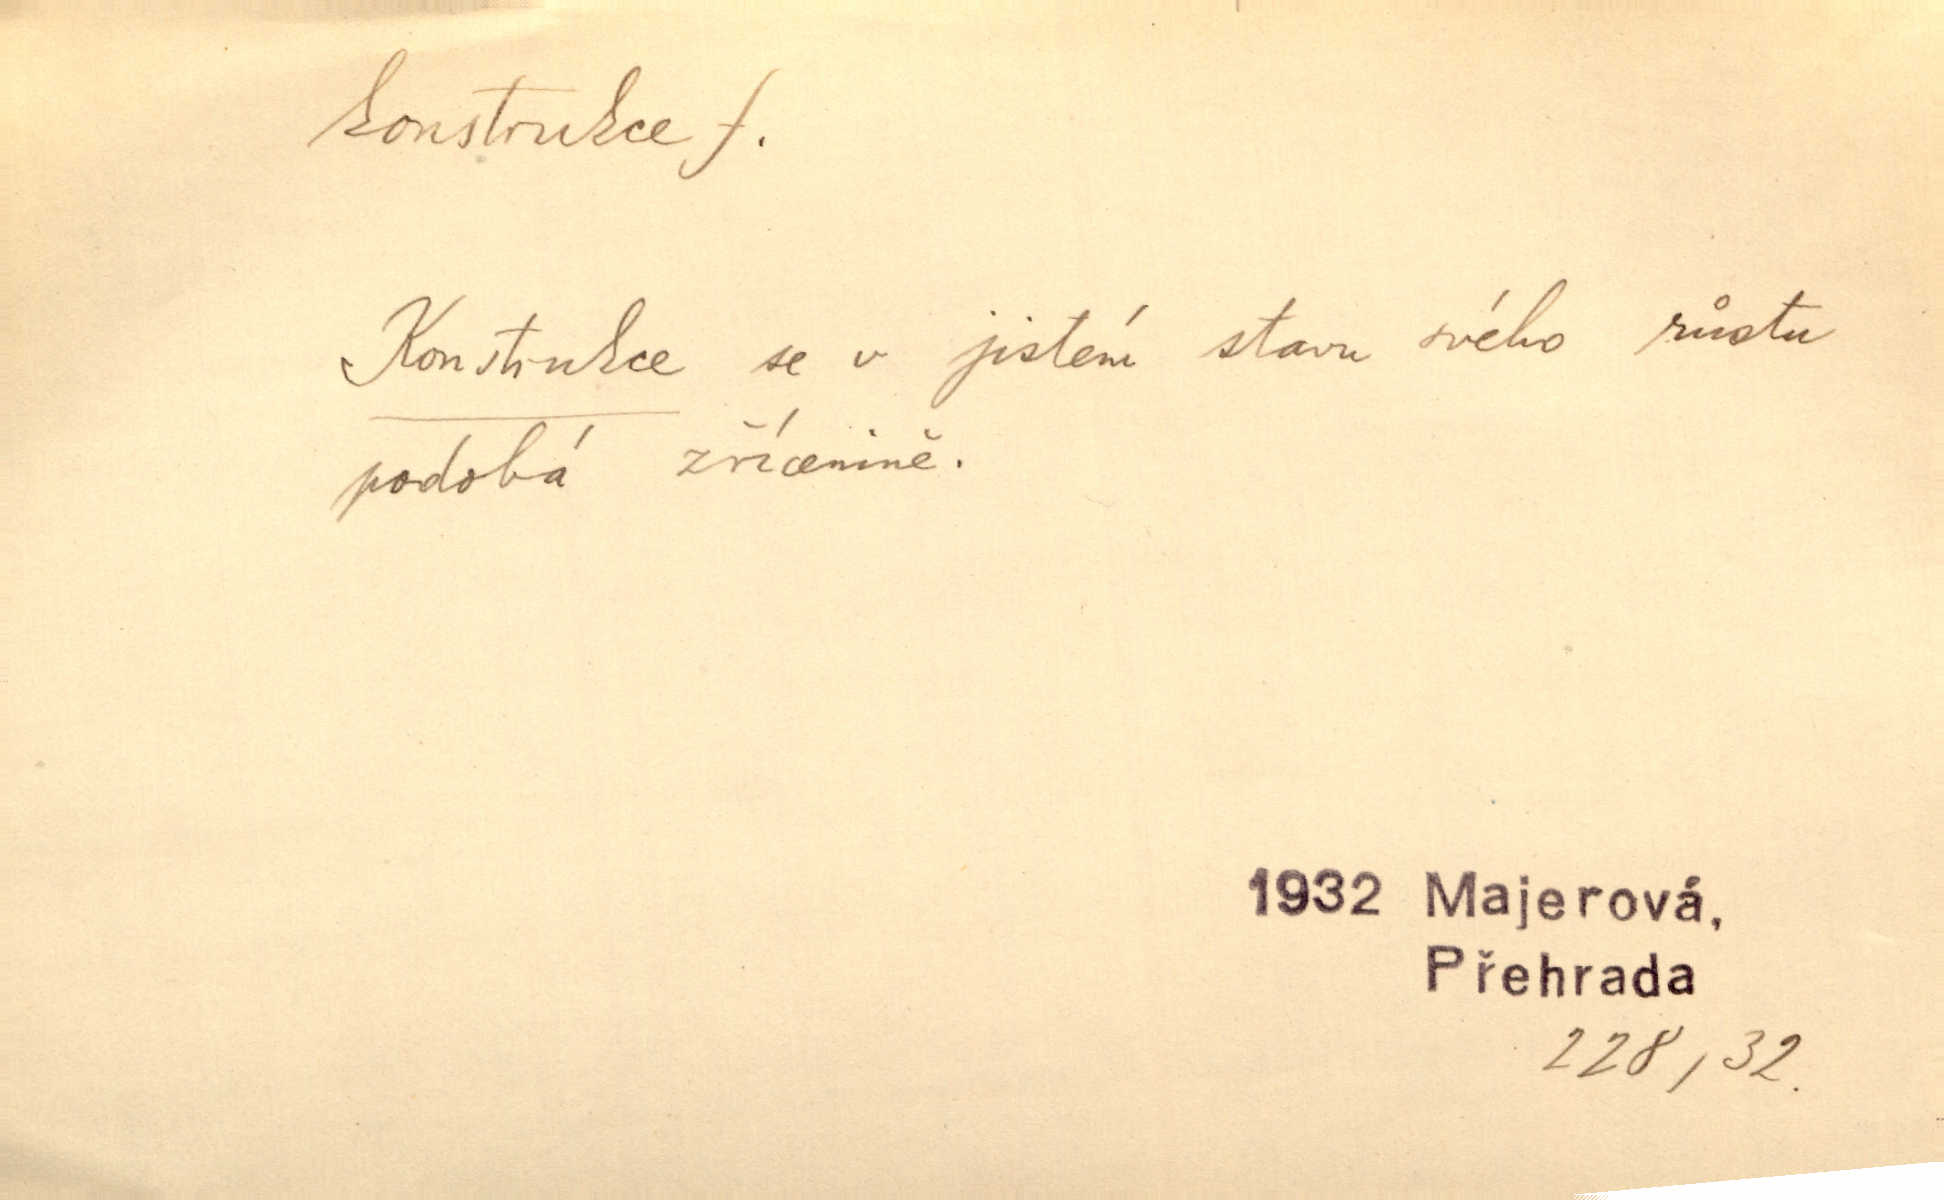 konstrukce f.
Konstrukce se v jistém stavu svého růstu
podobá zřícenině.
1932 Majerová,
Přehrada
228, 32.